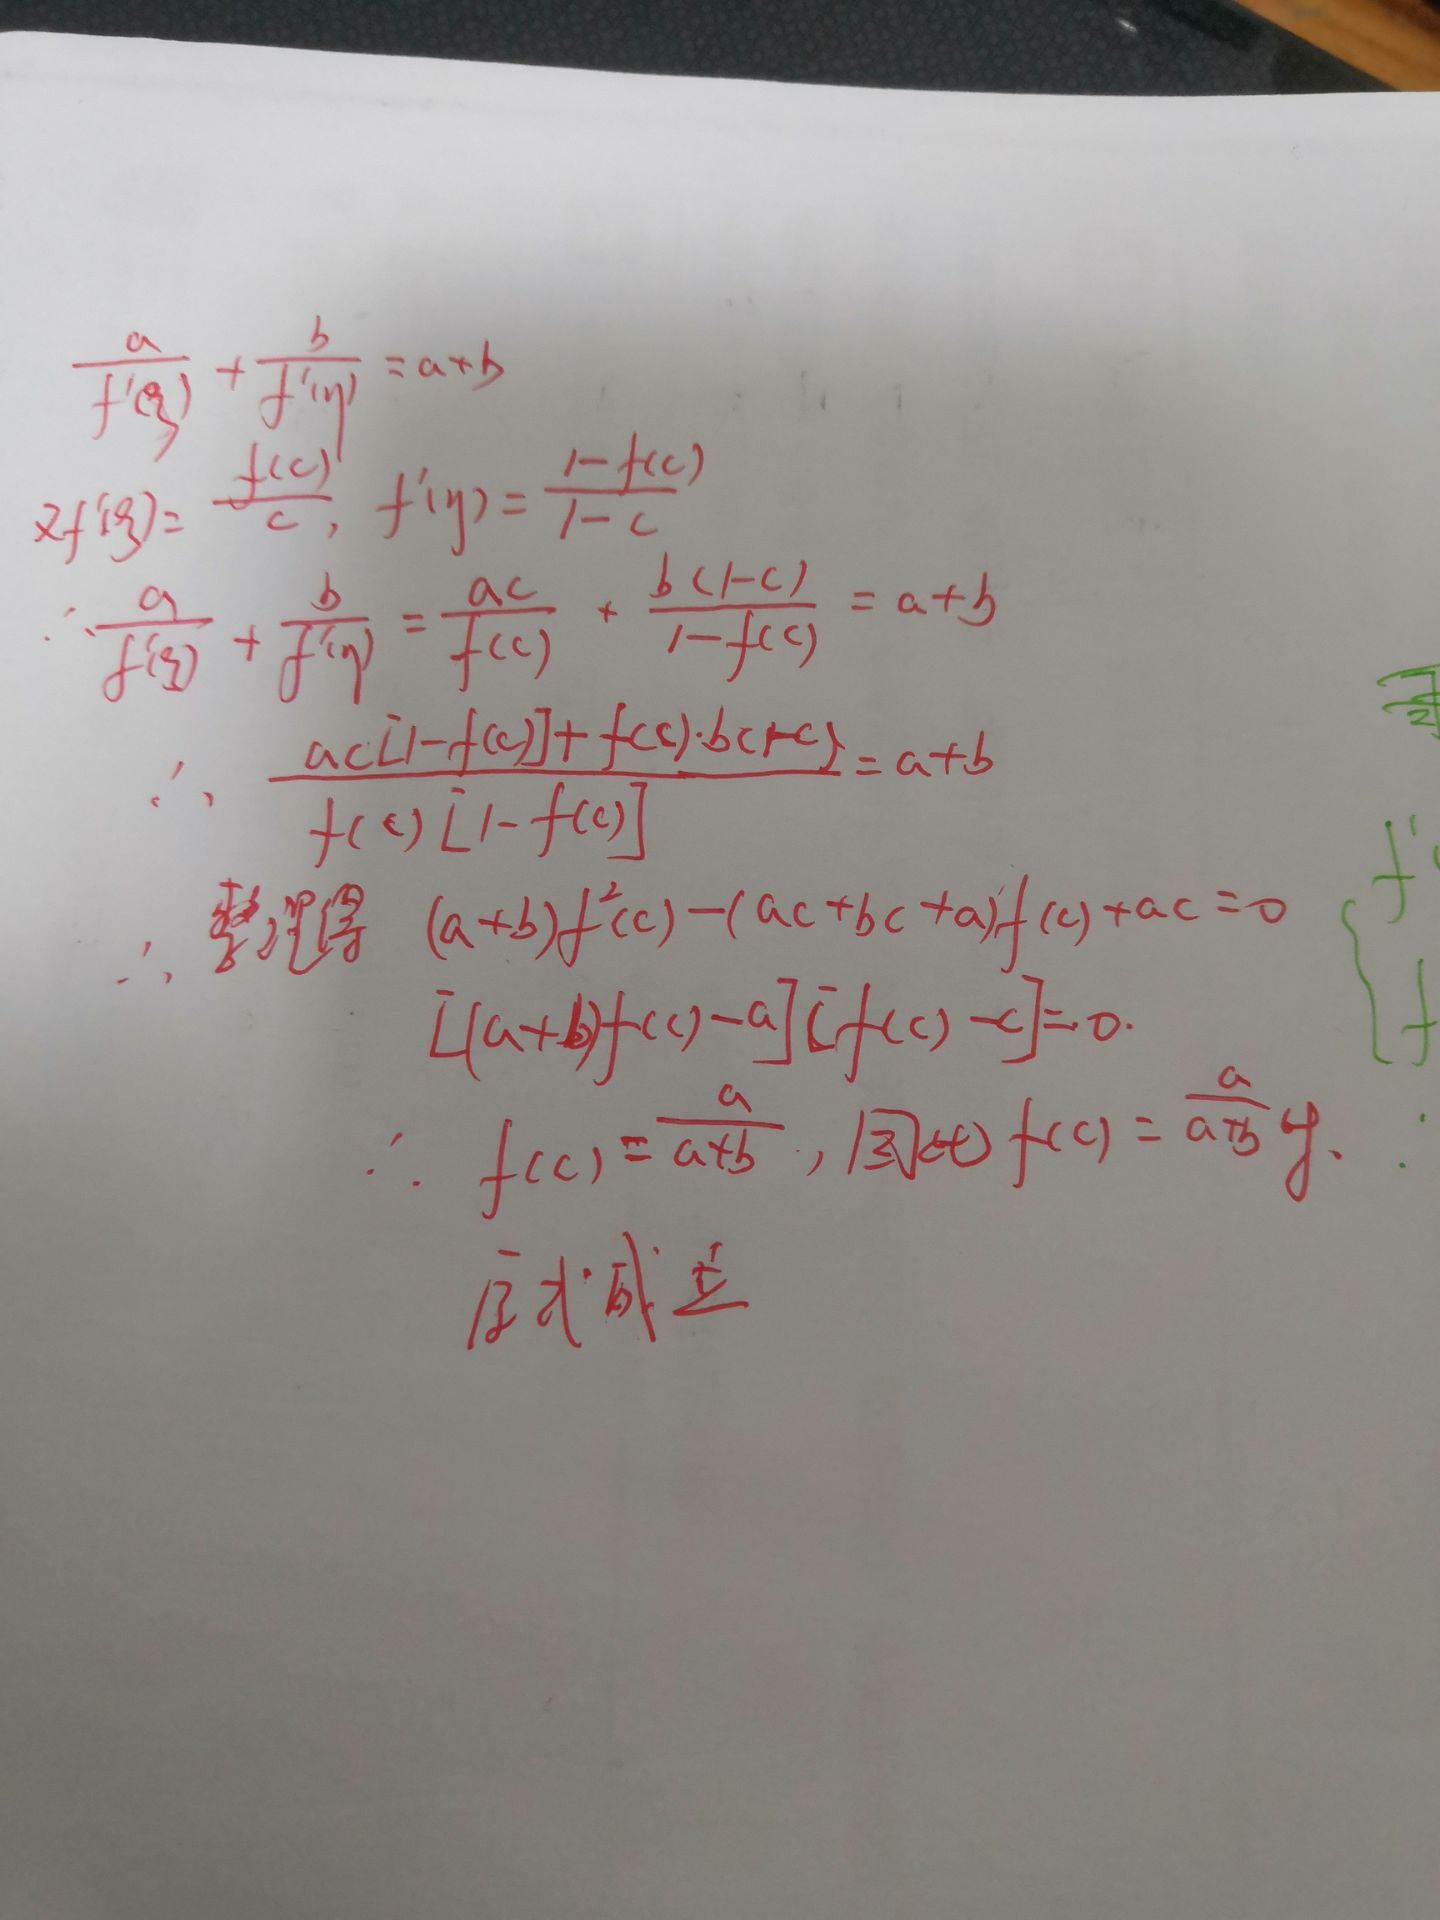 a/f'(ξ) + b/f'(η) = a+b
又f'(ξ)= f(c)/c, f'(η) = (1-f(c))/(1-c)
∴ a/f'(ξ) + b/f'(η) = ac/f(c) + b(1-c)/(1-f(c)) = a+b
∴ (ac[1-f(c)]+f(c)·b(1-c))/(f(c)[1-f(c)]) = a+b
∴ 整理得 (a+b)f²(c)-(ac+bc+a)f(c)+ac=0
[(a+b)f(c)-a][f(c)-c]=0.
∴ f(c)= a/(a+b), 因此 f(c)= a/(a+b) 时.
原式成立
f'
f